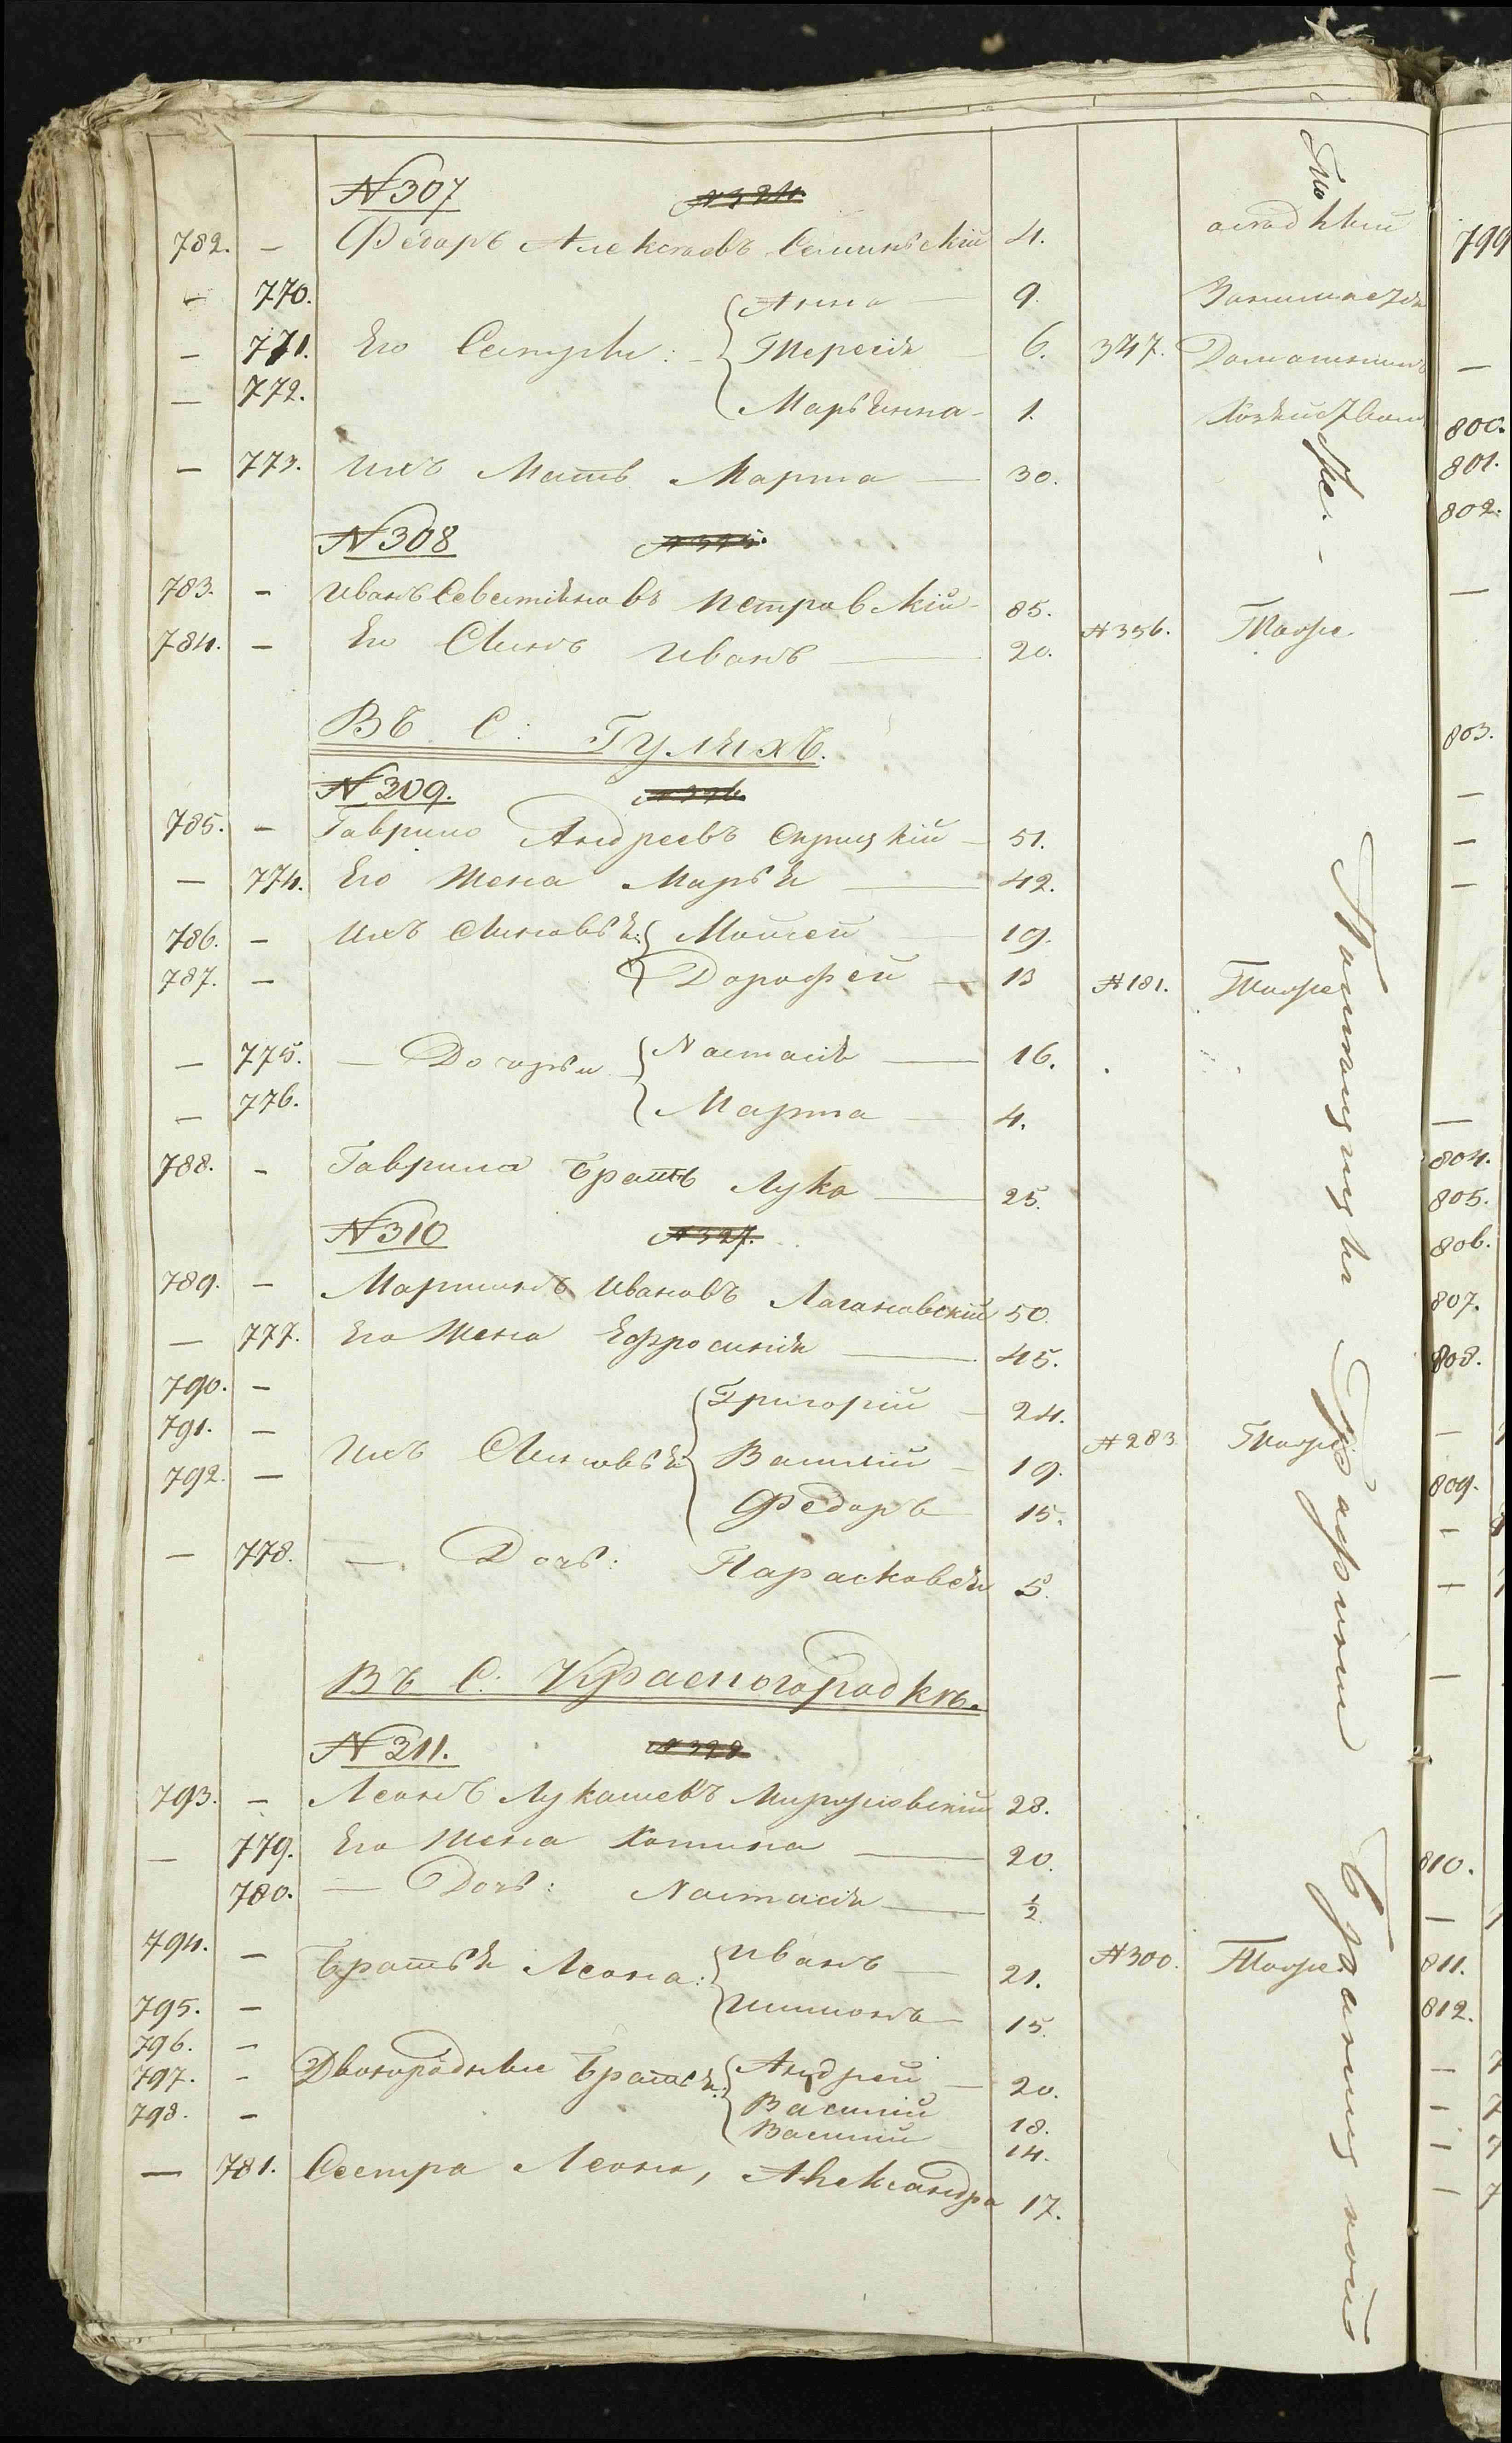 № 307
782. — Федоръ Алексѣевъ 4.
— 770. Анна — 9.
— 771. Его Сестры: Тересія 6. 347.
— 772. Марьянна — 1.
— 773. Ихъ Мать Марта — 30.
Занимается
Домашнимъ
Хозяйствомъ
№ 308
783. — Иванъ Севастіяновъ Петровскій — 85.
784. — Его Сынъ Иванъ — 20. № 356. Тоже.
Въ С: Гуляхъ.
№ 309.
785. — Гаврило Андреевъ Скрицкій — 51.
— 774. Его Жена Марья — 42.
786. — Ихъ Сыновья: Мойсей — 19.
787. — Дорофей — 13 № 181. Тоже
— 775. — Дочери Настасія — 16.
— 776. Марта — 4.
788. — Гаврила Братъ Лука — 25.
№ 310 № 327.
789. — Мартинъ Ивановъ Лагановскій 50.
— 777. Его Жена Ефросинія — 45.
790. — Григорій — 24.
791. — Ихъ Сыновья Василій — 19. № 283 Тоже
792. — Федоръ — 15.
— 778. — Дочь: Парасковія 5.
Въ С. Красногородкѣ.
№ 311. № 328
793. — Леонъ Лукашевъ 28.
— 779. Его Жена — 20.
780. — Дочь: Настасія — ½
794. — Братья Леона: Иванъ — 21. № 300. Тоже.
795. — 15.
796. — Двоюродные Братья: Андрей — 20.
797. — Василій 18.
798. — Василій 14.
— 781. Сестра Леона, Александра 17.
799
800.
801.
802.
803.
804.
805.
806.
807.
808.
809.
810.
811.
812.